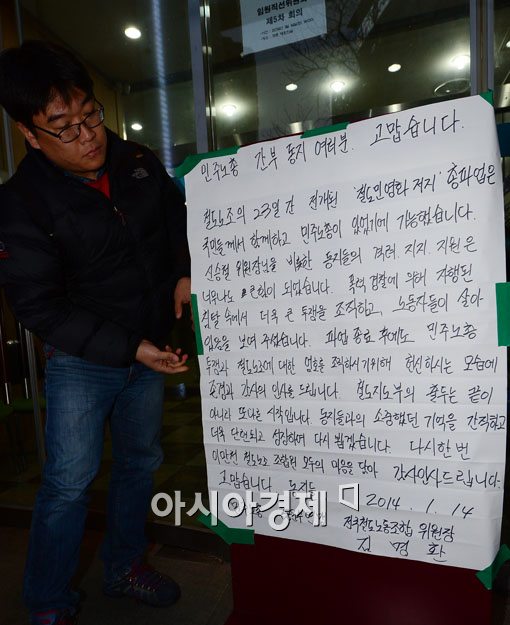 임원직선위원회
제5차 회의
민주노총 간부 동지 여러분. 고맙습니다.
철도노조의 23일간 전개된 '철도민영화 저지' 총파업은
국민들께서 함께하고 민주노총이 있었기에 가능했습니다.
신승철 위원장님을 비롯한 동지들의 격려. 지지. 지원은
너무나도 큰 힘이 되었습니다. 폭력 경찰에 의해 자행된
침탈 속에서 더욱 큰 투쟁을 조직하고, 노동자들이 살아
있음을 보여 주셨습니다. 파업 종료 후에도 민주노총
투쟁과 철도노조에 대한 엄호를 조직하시기 위해 헌신하시는 모습에
존경과 감사의 인사를 드립니다. 철도지도부의 출두는 끝이
아니라 또다른 시작입니다. 동지들과의 소중했던 기억을 간직하고
더욱 단련되고 성장하여 다시 뵙겠습니다. 다시 한 번
이만천 철도노조 조합원 모두의 마음을 담아 감사인사드립니다.
고맙습니다. 동지들
2014. 1. 14
전국철도노동조합 위원장
김명환
아시아경제